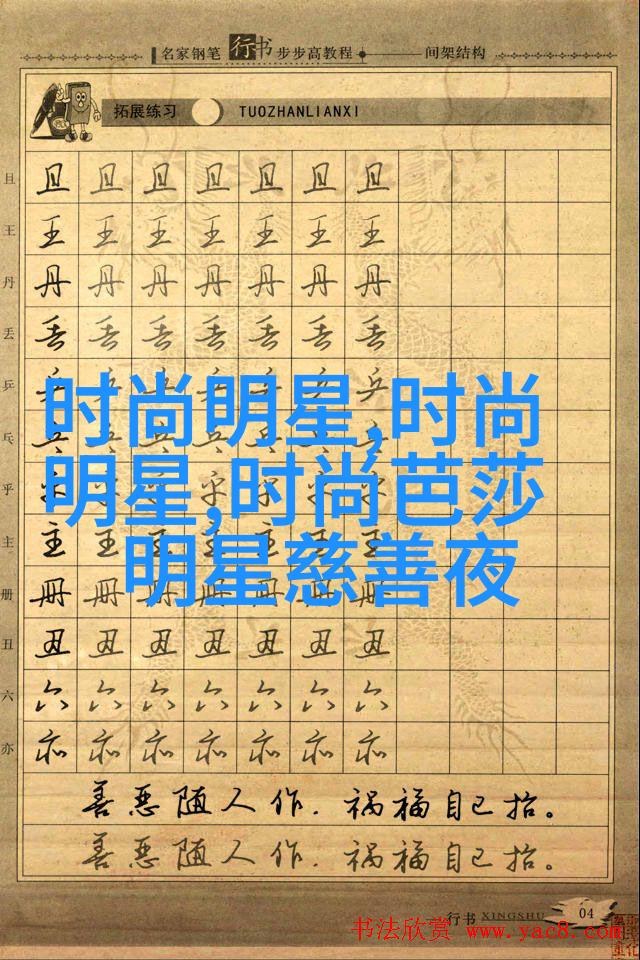 名家钢笔行书步步高教程 间架结构
拓展练习 TUOZHANLIANXI
且 且 且 且 且 且 且 且
王 王 王 王 王 王 王 王
丹 丹 丹 丹 丹 丹 丹 丹
丢 丢 丢 丢 丢 丢 丢 丢
乒 乒 乒 乒 乒 乒 乒 乒
乓 乓 乓 乓 乓 乓 乓 乓
乎 乎 乎 乎 乎 乎 乎 乎
主 主 主 主 主 主 主 主
册 册 册 册 册 册 册 册
丑 丑 丑 丑 丑 丑 丑 丑
六 六 六 六 六 六 六 六
亦 亦 亦 亦 亦 亦 亦 亦
时尚明星,时尚
明星,时尚芭莎
明星慈善夜
善恶随人作.祸福自己招。
善恶随人作.祸福自己招。
行书 XINGSHU 04
书法欣赏 www.yac8.com